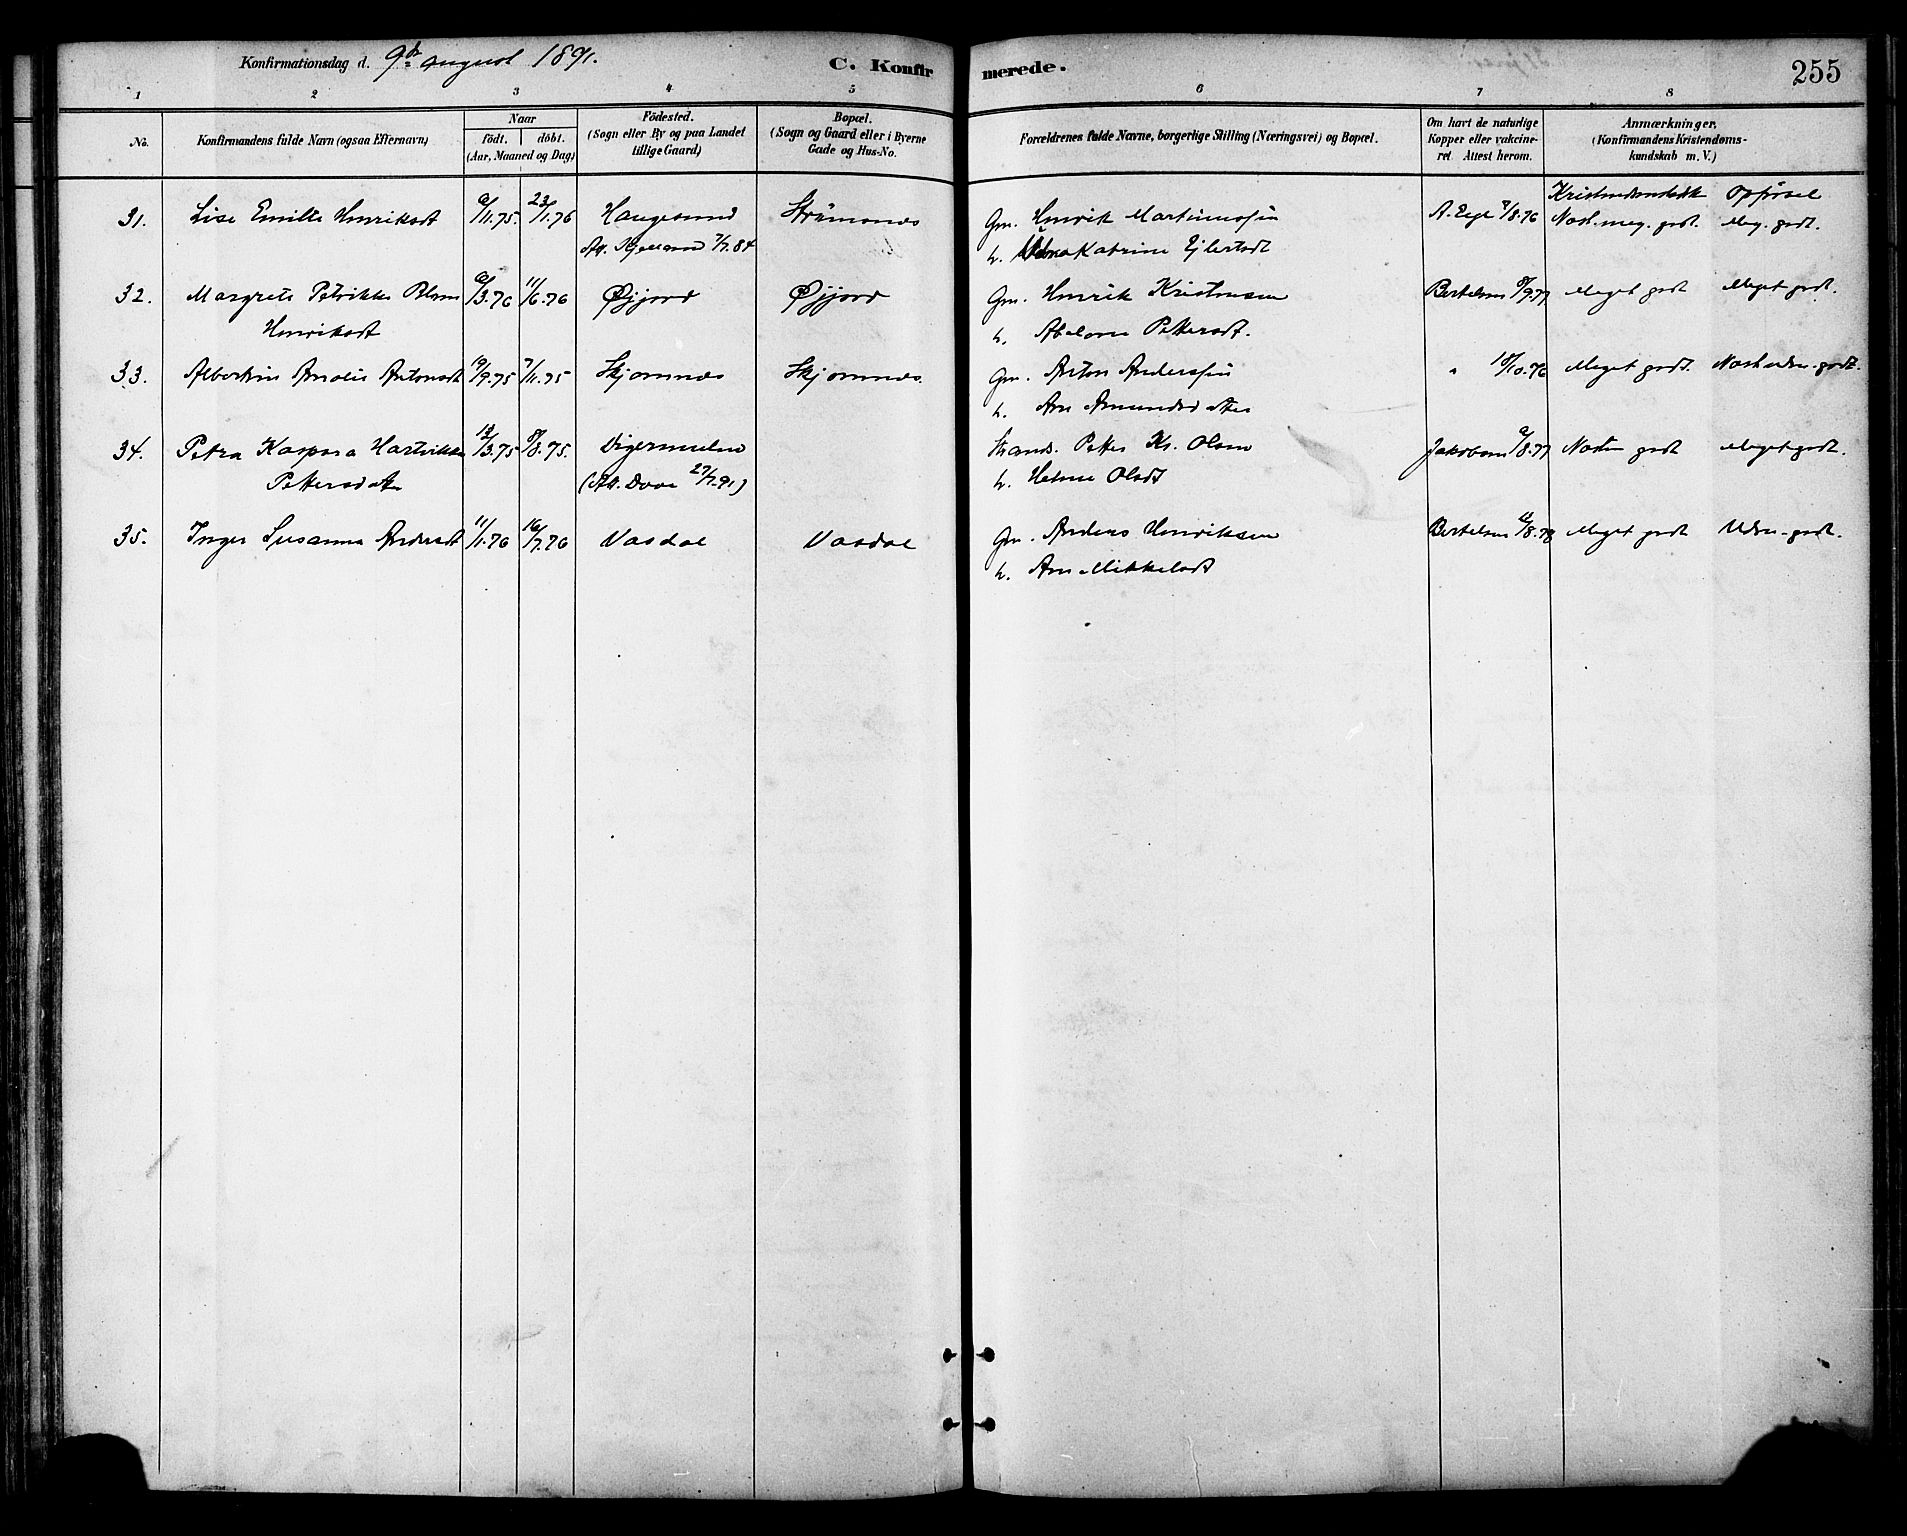 Konfirmationsdag d. 9de august 1891.
C. Konfirmerede.
255
1 2 3 4 5 6 7 8
No.
Konfirmandens fulde Navn (ogsaa Efternavn)
Naar
födt. döbt.
(Aar, Maaned og Dag)
Födested.
(Sogn eller By og paa Landet
tillige Gaard)
Bopæl.
(Sogn og Gaard eller i Byerne
Gade og Hus-No.
Forældrenes fulde Navne, borgerlige Stilling (Næringsvei) og Bopæl.
Om havt de naturlige
Kopper eller vakcine-
ret. Attest herom.
Anmærkninger,
(Konfirmandens Kristendoms-
kundskab m. V.)
Opførsel
31. Lise Emilie Henriksdt 6/11.75 23/1.76 Haugesund Strømsnes Gm. Henrik Martinussen 8/8.76 Nost. meg. godt. Meg. godt.
Att. 7/7.84 h. Katrine Ejlertsdt
32. Margrete Petrikke 6/3.76 11/6.76 Øijord Øijord Gm. Henrik Kristensen Bertelsen 8/9.77 Meget godt Meget godt.
Henriksdt h. Abelone Pettersdt.
33. Albertine Antonsdt 9/9.75 7/11.75 Skjomnes Skjomnes. Gm. Anton Anderssen " 18/10.76 Meget godt. Nost. godt.
h. Ane Amundsdatter
34. Petra Kaspara Hartvikke 12/3.75 8/8.75. Digermulen Strands. Petter Kr. Olsen Jakobsen 9/8.77 godt Meget godt.
Pettersdatter (Att. 27/7.91) h. Helene Olsdt
35. Inger Susanna Andersdt 11/1.76 16/7.76 Vasdal Vasdal Gm. Anders Henriksen Bertelsen 12/8.78 Meget godt Udm. godt.
h. Ane Mikkelsdt